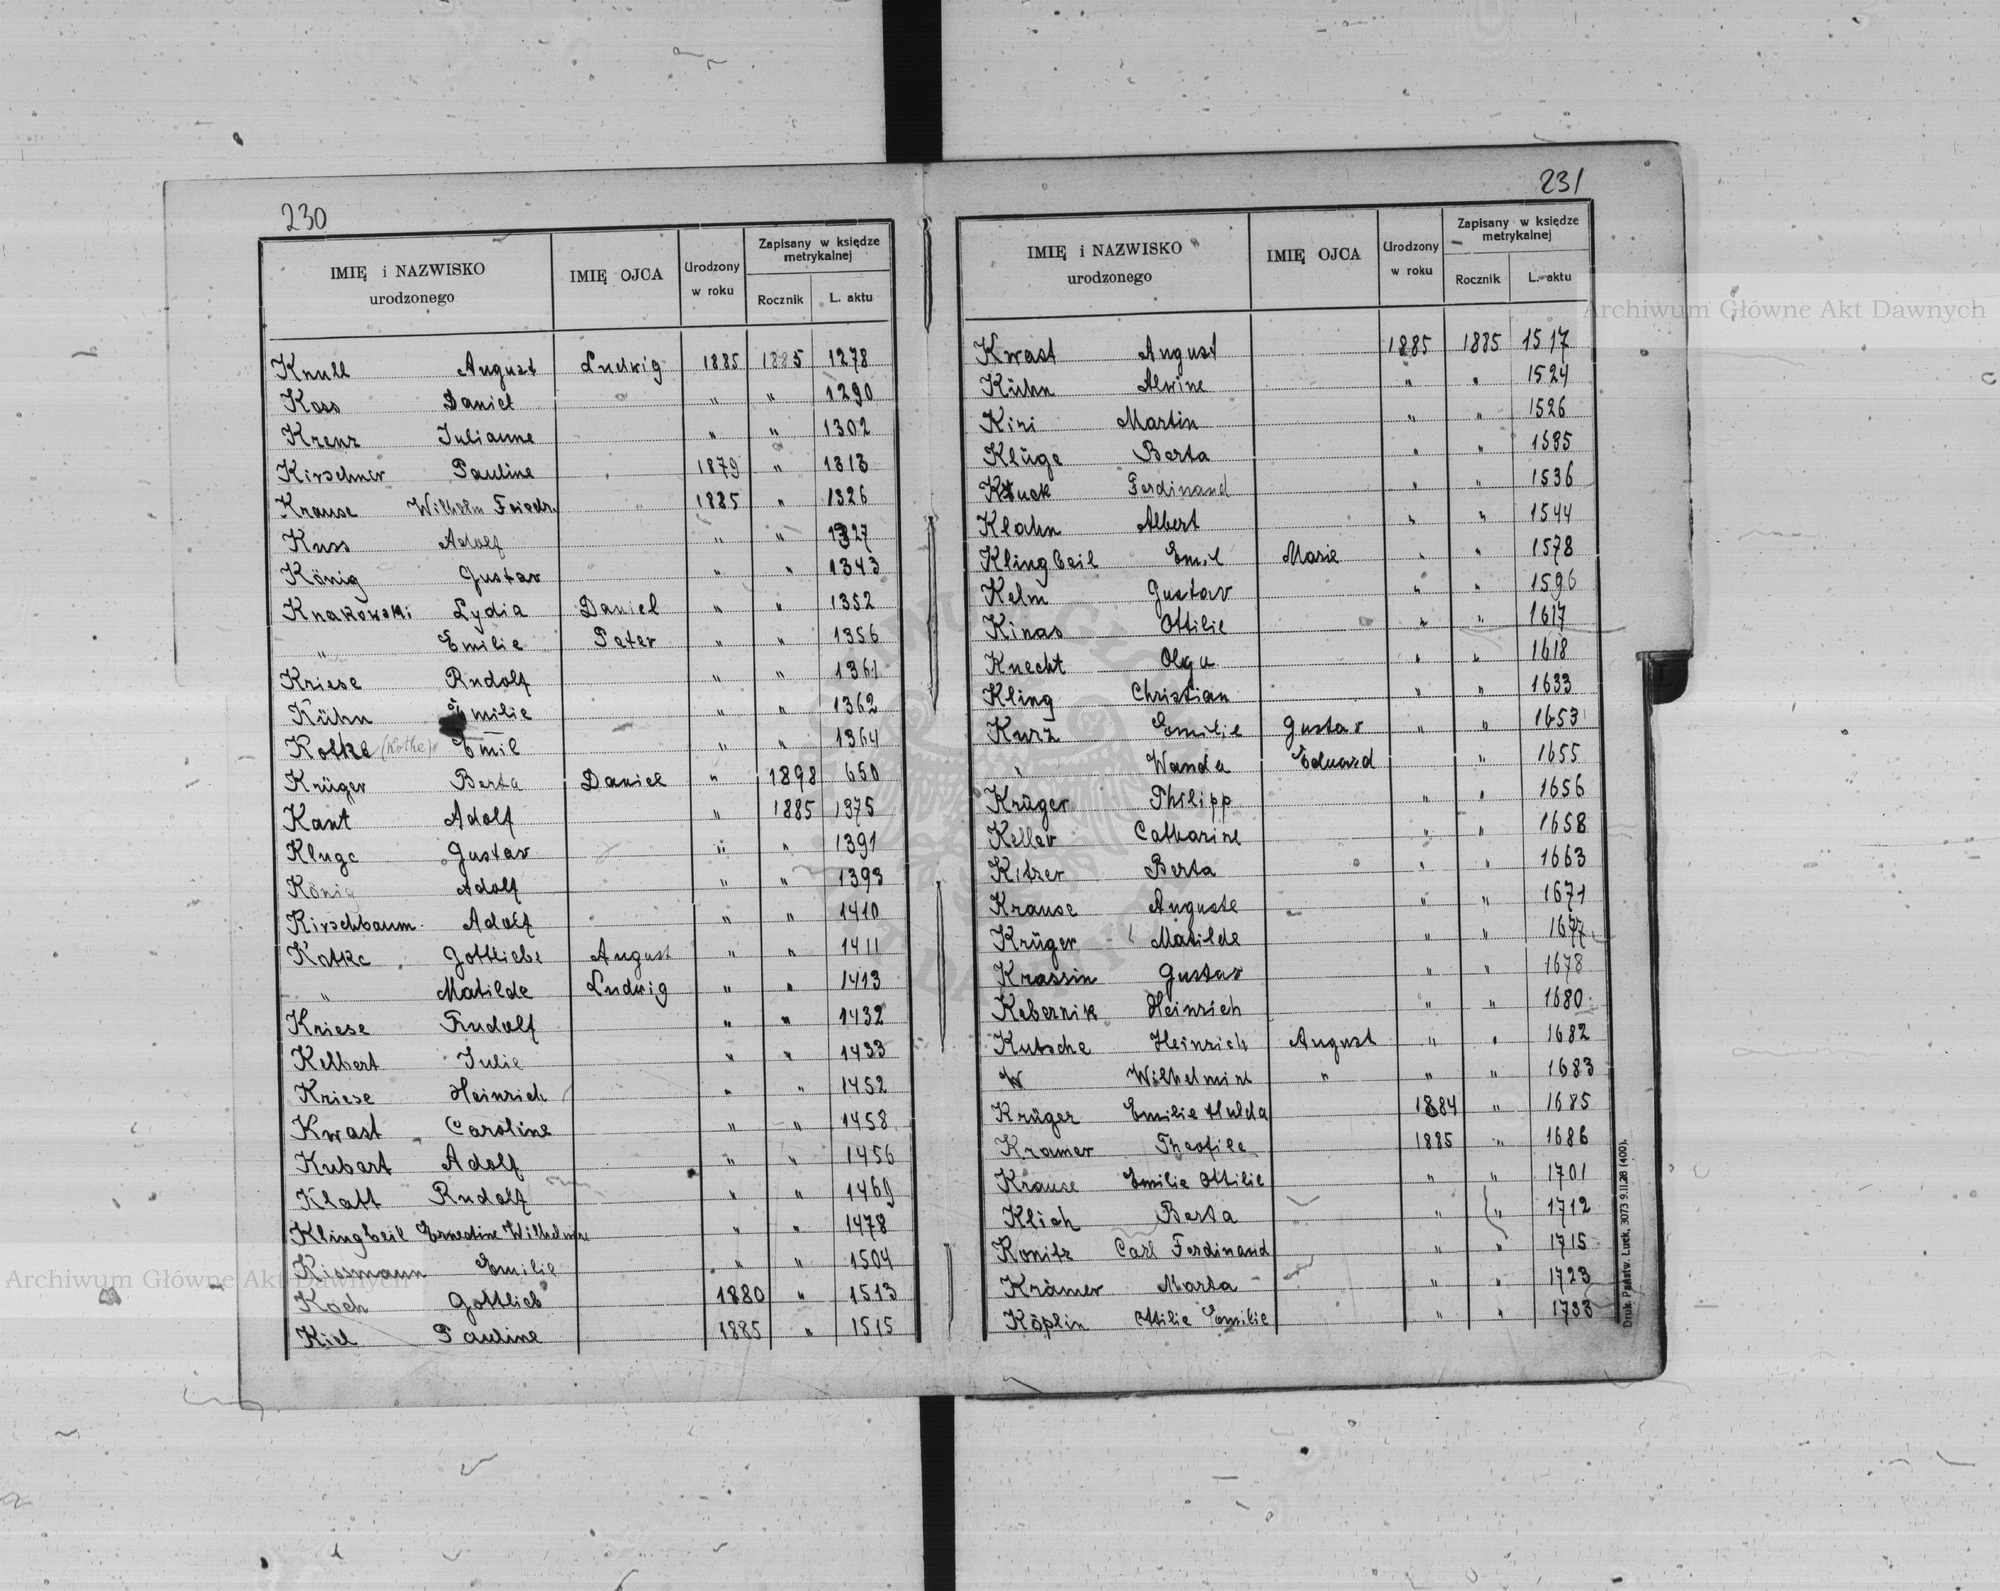 230
IMIĘ i NAZWISKO urodzonego | IMIĘ OJCA | Urodzony w roku | Zapisany w księdze metrykalnej
Rocznik | L. aktu
Knull August Ludwig 1885 1885 1278
Koss Daniel " " 1290
Krenz Julianne " " 1302
Kirschner Pauline 1879 " 1313
Krause Wilhelm Friedr. 1885 " 1326
Kuss Adolf " " 1327
König Gustav " " 1343
Knakowski Lydia Daniel " " 1352
" Emilie Peter " " 1356
Kriese Rudolf " " 1361
Kühn Emilie " " 1362
Kotke (Kothe) Emil " " 1364
Krüger Berta Daniel " 1898 650
Kant Adolf " 1885 1375
Kluge Gustav " " 1391
König Adolf " " 1393
Kirschbaum Adolf " " 1410
Kotke Gottliebe August " " 1411
" Matilde Ludwig " " 1413
Kriese Rudolf " " 1432
Kelbert Julie " " 1433
Kriese Heinrich " " 1452
Kwast Caroline " " 1458
Kubart Adolf " " 1456
Klatt Rudolf " " 1469
Klingbeil Ernestine Wilhelmine " " 1478
Kissmann Emilie " " 1504
Koch Gottlieb 1880 " 1513
Kiel Pauline 1885 " 1515
231
IMIĘ i NAZWISKO urodzonego | IMIĘ OJCA | Urodzony w roku | Zapisany w księdze metrykalnej
Rocznik | L. aktu
Kwast August 1885 1885 1517
Kühn Alwine " " 1524
Kini Martin " " 1526
Klüge Berta " " 1535
Kluck Ferdinand " " 1536
Klahn Albert " " 1544
Klingbeil Emil Marie " " 1578
Kelm Gustav " " 1596
Kinas Ottilie " " 1617
Knecht Olga " " 1618
Kling Christian " " 1633
Kurz Emilie Gustav " " 1653
" Wanda Eduard " 1655
Krüger Philipp " " 1656
Keller Catharine " " 1658
Kitzer Berta " " 1663
Krause Auguste " " 1671
Krüger Matilde " " 1677
Krassin Gustav " " 1678
Kebernik Heinrich " " 1680
Kutsche Heinrich August " " 1682
" Wilhelmine " " " 1683
Krüger Emilie Hulda 1884 " 1685
Kramer Theofile 1885 " 1686
Krause Emilie Ottilie " " 1701
Klich Berta " " 1712
Konitz Carl Ferdinand " " 1715
Krämer Marta " " 1723
Köplin Ottilie Emilie " " 1733
Druk. Państw. Łuck, 3073 9.II.28 (400).
Archiwum Główne Akt Dawnych
Archiwum Główne Akt Dawnych